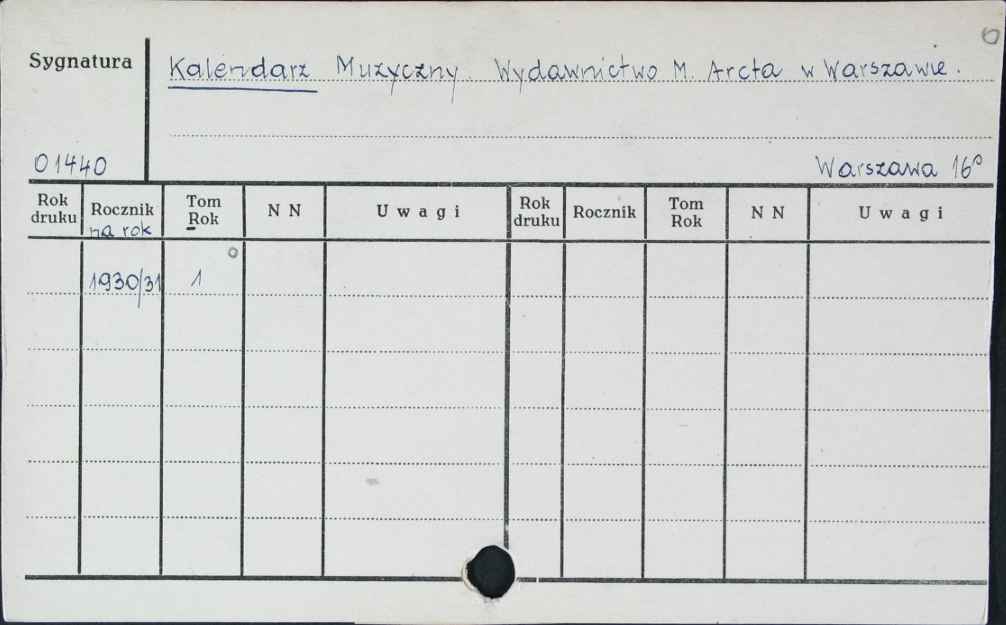 Sygnatura
Kalendarz Muzyczny. Wydawnictwo M. Arcta w Warszawie.
01440
Warszawa 16°
Rok druku Rocznik na rok Tom Rok N N Uwagi Rok druku Rocznik Tom Rok N N Uwagi
1930/31 1